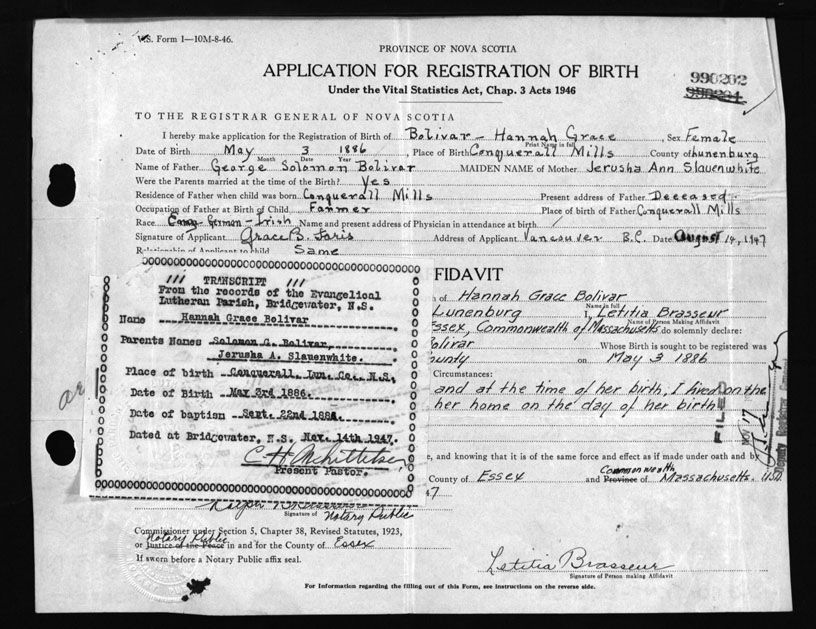 V.S. Form 1—10M-8-46.
PROVINCE OF NOVA SCOTIA
APPLICATION FOR REGISTRATION OF BIRTH
Under the Vital Statistics Act, Chap. 3 Acts 1946
990202
TO THE REGISTRAR GENERAL OF NOVA SCOTIA
I hereby make application for the Registration of Birth of Bolivar - Hannah Grace Sex Female
Print Name in full
Date of Birth May 3 1886, Place of Birth Conquerall Mills County of Lunenburg
Month Date Year
Name of Father George Solomon Bolivar MAIDEN NAME of Mother Jerusha Ann Slauenwhite
Were the Parents married at the time of the Birth? Yes
Residence of Father when child was born Conquerall Mills Present address of Father Deceased
Occupation of Father at Birth of Child Farmer Place of birth of Father Conquerall Mills
Race German - Irish Name and present address of Physician in attendance at birth
Signature of Applicant Grace B. Faris Address of Applicant Vancouver B.C. Date August 14, 1947
Relationship of Applicant to child Same
TRANSCRIPT
From the records of the Evangelical
Lutheran Parish, Bridgewater, N.S.
Name Hannah Grace Bolivar
Parents Names Solomon G. Bolivar,
Jerusha A. Slauenwhite.
Place of birth Conquerall, Lun. Co., N.S.
Date of Birth May 3rd 1886.
Date of baptism Sept. 22nd 1886.
Dated at Bridgewater, N.S. Nov. 14th 1947.
Present Pastor.
FIDAVIT
of Hannah Grace Bolivar
Name in full
Lunenburg I, Letitia Brasseur
Name of Person Making Affidavit
Essex, Commonwealth of Massachusetts do solemnly declare:
Bolivar Whose Birth is sought to be registered was
ounty on May 3 1886
Circumstances:
and at the time of her birth, I lived on the
her home on the day of her birth
FILED
e, and knowing that it is of the same force and effect as if made under oath and by
County of Essex and Commonwealth Province of Massachusetts. USA
47
Signature of Notary Public
Commissioner under Section 5, Chapter 38, Revised Statutes, 1923,
Notary Public
or Justice of the Peace in and for the County of Essex
If sworn before a Notary Public affix seal.
Letitia Brasseur
Signature of Person making Affidavit
For Information regarding the filling out of this Form, see instructions on the reverse side.